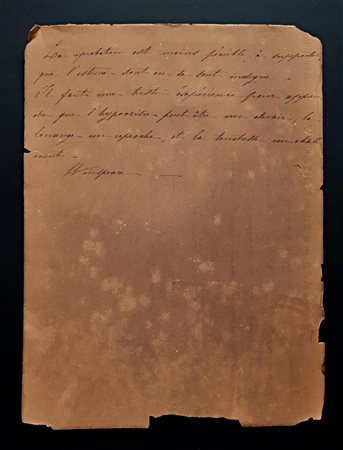 La réprobation est moins pénible à supporter
que l'estime dont on se sent indigne.
Il faut une triste expérience pour appren
dre que l'hypocrisie peut être un devoir, la
louange un reproche, et la tendresse un châti
ment.